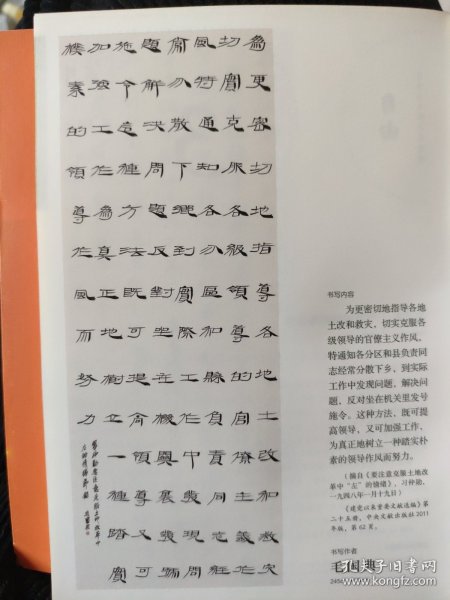 為更密切地指導各地土改和救災
切實克服各級領導的官僚主義作
風特通知各分區和縣負責同志經
常分散下鄉到實際工作中發現問
題解決問題反對坐在機關里發號
施令這種方法既可提高領導又可
加強工作為真正地樹立一種踏實
樸素的領導作風而努力
书写内容
为更密切地指导各地
土改和救灾，切实克服各
级领导的官僚主义作风，
特通知各分区和县负责同
志经常分散下乡，到实际
工作中发现问题，解决问
题，反对坐在机关里发号
施令。这种方法，既可提
高领导，又可加强工作，
为真正地树立一种踏实朴
素的领导作风而努力。
（摘自《要注意克服土地改
革中“左”的情绪》，习仲勋，
一九四八年一月十九日）
《建党以来重要文献选编》第
二十五册，中央文献出版社 2011
年版，第 62 页。
书写作者
毛国典
孔夫子旧书网
kongfz.com